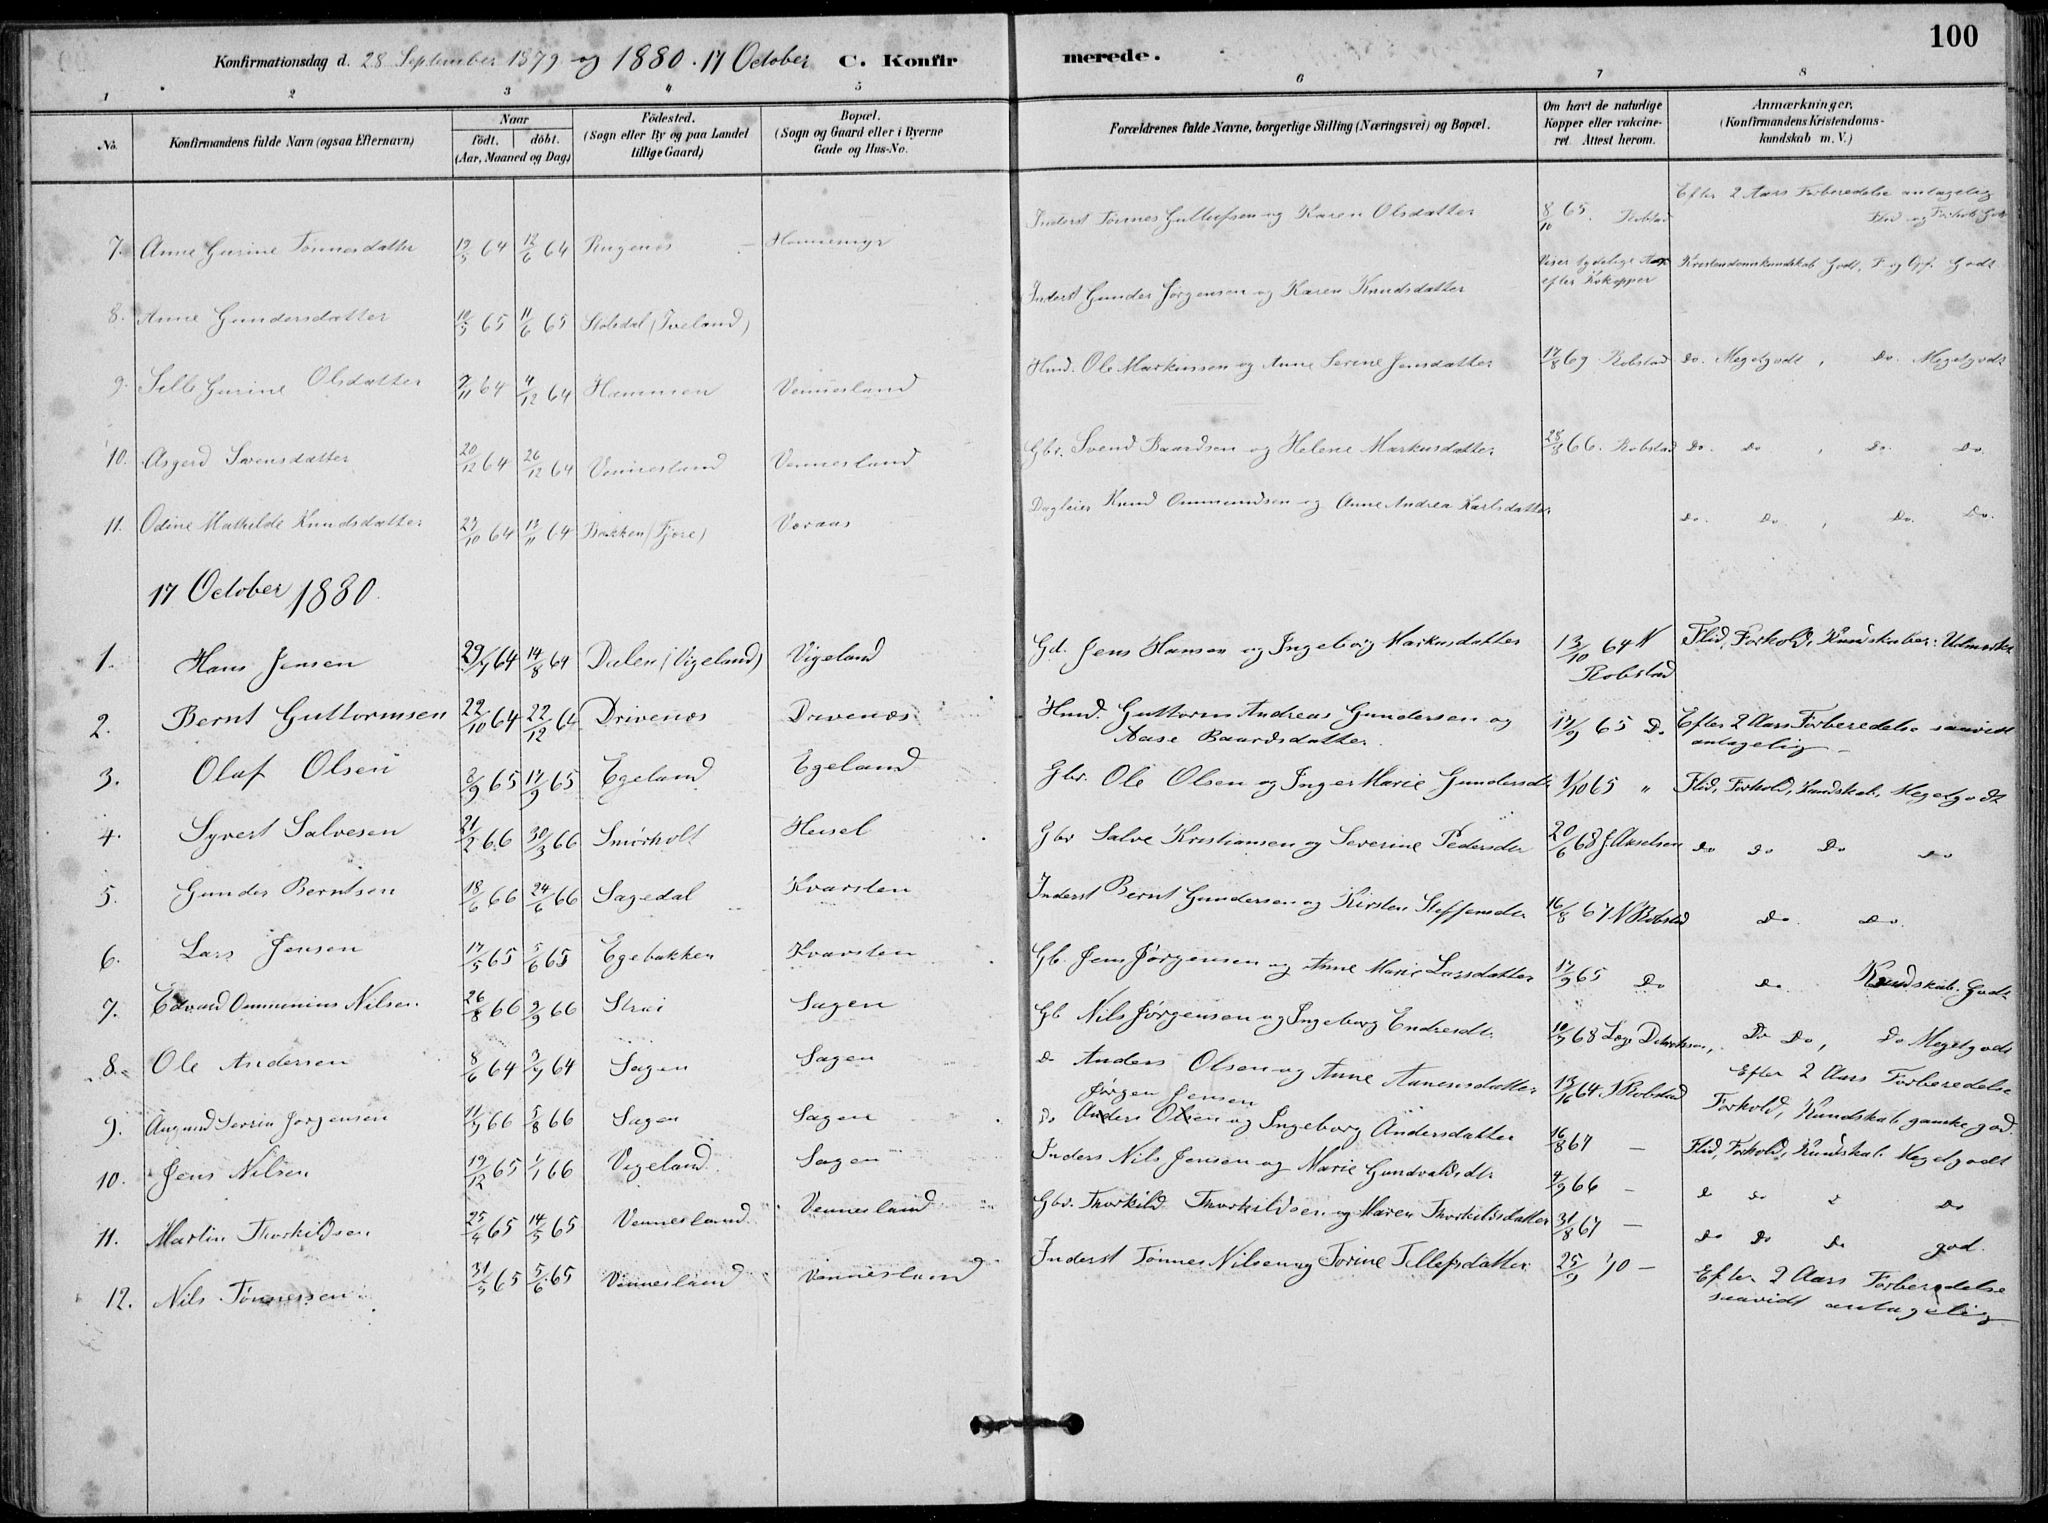 100
Konfirmationsdag d. 28 September 1879 og 1880. 17 October C. Konfirmerede.
1 2 3 4 5 6 7 8
No. Konfirmandens fulde Navn (ogsaa Efternavn) Naar födt. döbt. (Aar, Maaned og Dag) Födested. (Sogn eller By og paa Landet tillige Gaard) Bopæl. (Sogn og Gaard eller i Byerne Gade og Hus-No. Forældrenes fulde Navne, borgerlige Stilling (Næringsvei) og Bopæl. Om havt de naturlige Kopper eller vakcineret. Attest herom. Anmærkninger, (Konfirmandens Kristendomskundskab m. V.)
7. Anne Gurine Tønnesdatter 64 12/6 64 Ringenes Hommemyr Inderst Tønnes Gullufsen og Karen Olsdatter 8/10 65. Robstad Efter 2 Aars Forberedelse antagelig Flid og Forhold Godt
8. Anne Gundersdatter 10/5 65 11/6 65 Stølsdal (Iveland) Inderst Gunder Jørgensen og Karen Knudsdatter Viser tydelige Ar efter Kokopper Kristendomskundskab Godt, F. og Opf. Godt
9. Sille Gurine Olsdatter 9/11 64 4/12 64 Hammen Vennesland Husd. Ole Markussen og Anne Serine Jensdatter 17/8 69 Robstad Do. Megetgodt, Do. Megetgodt
10. Asgerd Svensdatter 20/12 64 26/12 64 Vennesland Vennesland Gbr. Svend Baardsen og Helene Markusdatter 28/8 66. Robstad Do. Do , Do. Do.
11. Odine Mathilde Knudsdatter 23/10 64 13/11 64 Bakken (Fjære) Voraas Dagleier Knud Ommundsen og Anne Andrea Karlsdatter Do. Do. , Do. Do.
17 October 1880.
1. Hans Jensen 29/7 64 14/8 64 Dalen (Vigeland) Vigeland Gd. Jens Hansen og Ingeborg Markusdatter 13/10 64 N Robstad Flid, Forhold, Kundskaber: Udmærket
2. Bernt Guttormsen 22/10 64 22/12 64 Drivenæs Drivenæs Husd. Guttorm Andreas Gundersen og Aase Baardsdatter. 17/9 65 Do Efter 2 Aars Forberedelse saavidt antagelig
3. Olaf Olsen 3/9 65 17/9 65 Egeland Egeland Gbr. Ole Olsen og Inger Marie Gundersdt 1/10 65 " Flid, Forhold, Kundskab, Megetgodt
4. Syvert Salvesen 21/2 66 30/3 66 Smørholt Heisel Gbr Salve Kristiansen og Severine Pedersdtr 20/6 68 J. Akselsen Do Do Do Do
5. Gunder Berntsen 18/6 66 24/6 66 Sagedal Kvarsten Inderst Bernt Gundersen og Kirsten Steffensdtr 16/8 67 N Robstad Do. Do.
6. Lars Jensen 17/5 65 5/6 65 Egebakken Kvarsten Gb. Jens Jørgensen og Anne Marie Larsdatter 17/9 65 Do Do Kundskab. Godt
7. Edvard Ommunius Nilsen. 26/8 66 2/9 66 Strai Sagen Gb Nils Jørgensen og Ingeborg Endresdt. 10/7 68 Læge Do Do, Do Megetgodt
8. Ole Andersen 8/6 64 3/7 64 Sagen Sagen Do Anders Olsen og Anne Aanensdatter 64 N Robstad Efter 2 Aars Forberedelse Forhold, Kundskab ganske god.
9. Aanund Serrin Jørgensen 11/7 66 5/8 66 Sagen Sagen Do Jørgen Jensen Anders Olsen og Ingeborg Andersdatter 16/8 67 — Flid, Forhold, Kundskab. Megetgodt
10. Jens Nilsen 19/12 65 1/1 66 Vigeland Sagen Inders Nils Jensen og Marie Gundvaldsdt. 4/9 66 — Do Do Do Do
11. Martin Thorkildsen 25/4 65 14/5 65 Vennesland Vennesland Gbr. Thorkild Thorkildsen og Maren Thorkildsdatter 31/8 67 — Do Do Do god.
12. Nils Tønnessen 31/5 65 5/6 65 Vennesland Vennesland Inderst Tønnes Nilsen og Torine Tellefsdatter 25/9 70 — Efter 2 Aars Forberedelse saavidt antagelig